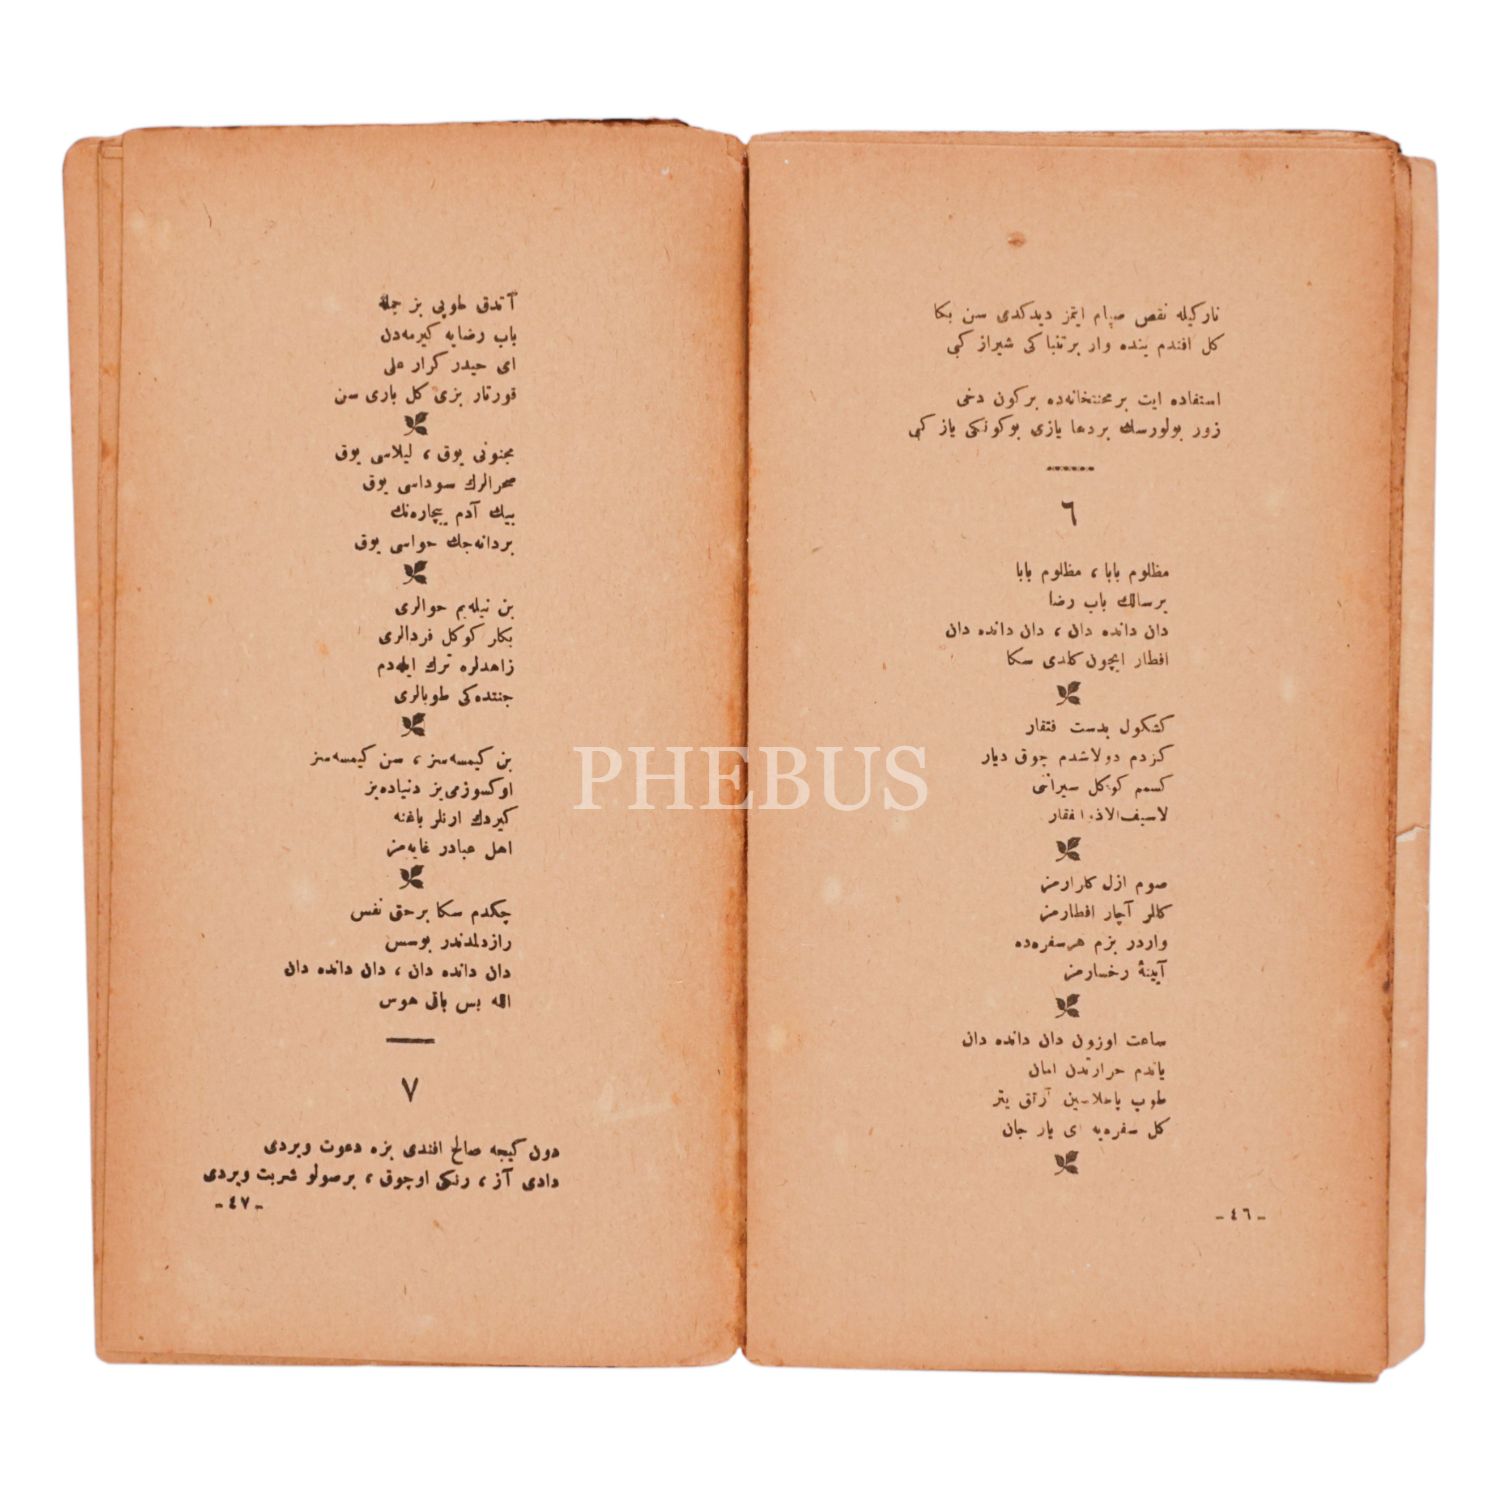 نارکیله نقص صیام ایتمز دیدکدی سن بکا
کل افندم بنده وار برتنباکی شیراز کبی
استفاده ایت برمحنتخانه‌ده برکون دخی
زور بولورسك بردها یازی بوکونکی یاز کبی
٦
مظلوم بابا ، مظلوم بابا
برسالك باب رضا
دان دانده دان ، دان دانده دان
افطار ایچون کلدی سکا
کشکول بدست فتقار
کزدم دولاشدم چوق دیار
کسمم کوکل سیرانی
لاسیف الاذوالفقار
صوم ازل کارارمز
کالر آچار افطارمز
واردر بزم هرسفره‌ده
آیینهٔ رخسارمز
ساعت اوزون دان دانده دان
یاندم حرارتدن امان
طوپ پاطلاسین آرتق یتر
کل سفره‌یه ای یار جان
- ٤٦ -
آتدق طوپی بز جملهٔ
باب رضایه کیرمه‌دن
ای حیدر کرار علی
قورتار بزی کل باری سن
مجنونی یوق ، لیلاسی یوق
صحرالرك سوداسی یوق
بیك آدم بیچاره‌نك
بردانه‌جك حواسی یوق
بن نیله‌یم حوالری
بکار کوکل فردالری
زاهدلره ترك ایله‌دم
جنتده‌کی طوبالری
بن کیمسه‌سز ، سن کیمسه‌سز
اوکسوزمی‌یز دنیاده‌بز
کیردك ارنلر باغنه
اهل عبادر غایه‌مز
چکدم سکا برحق نفس
رازدلمدندر بوسس
دان دانده دان ، دان دانده دان
الله بس باقی هوس
٧
دون کیجه صالح افندی بزه دعوت ویردی
دادی آز ، رنکی اوچوق ، برصولو شربت ویردی
- ٤٧ -
PHEBUS